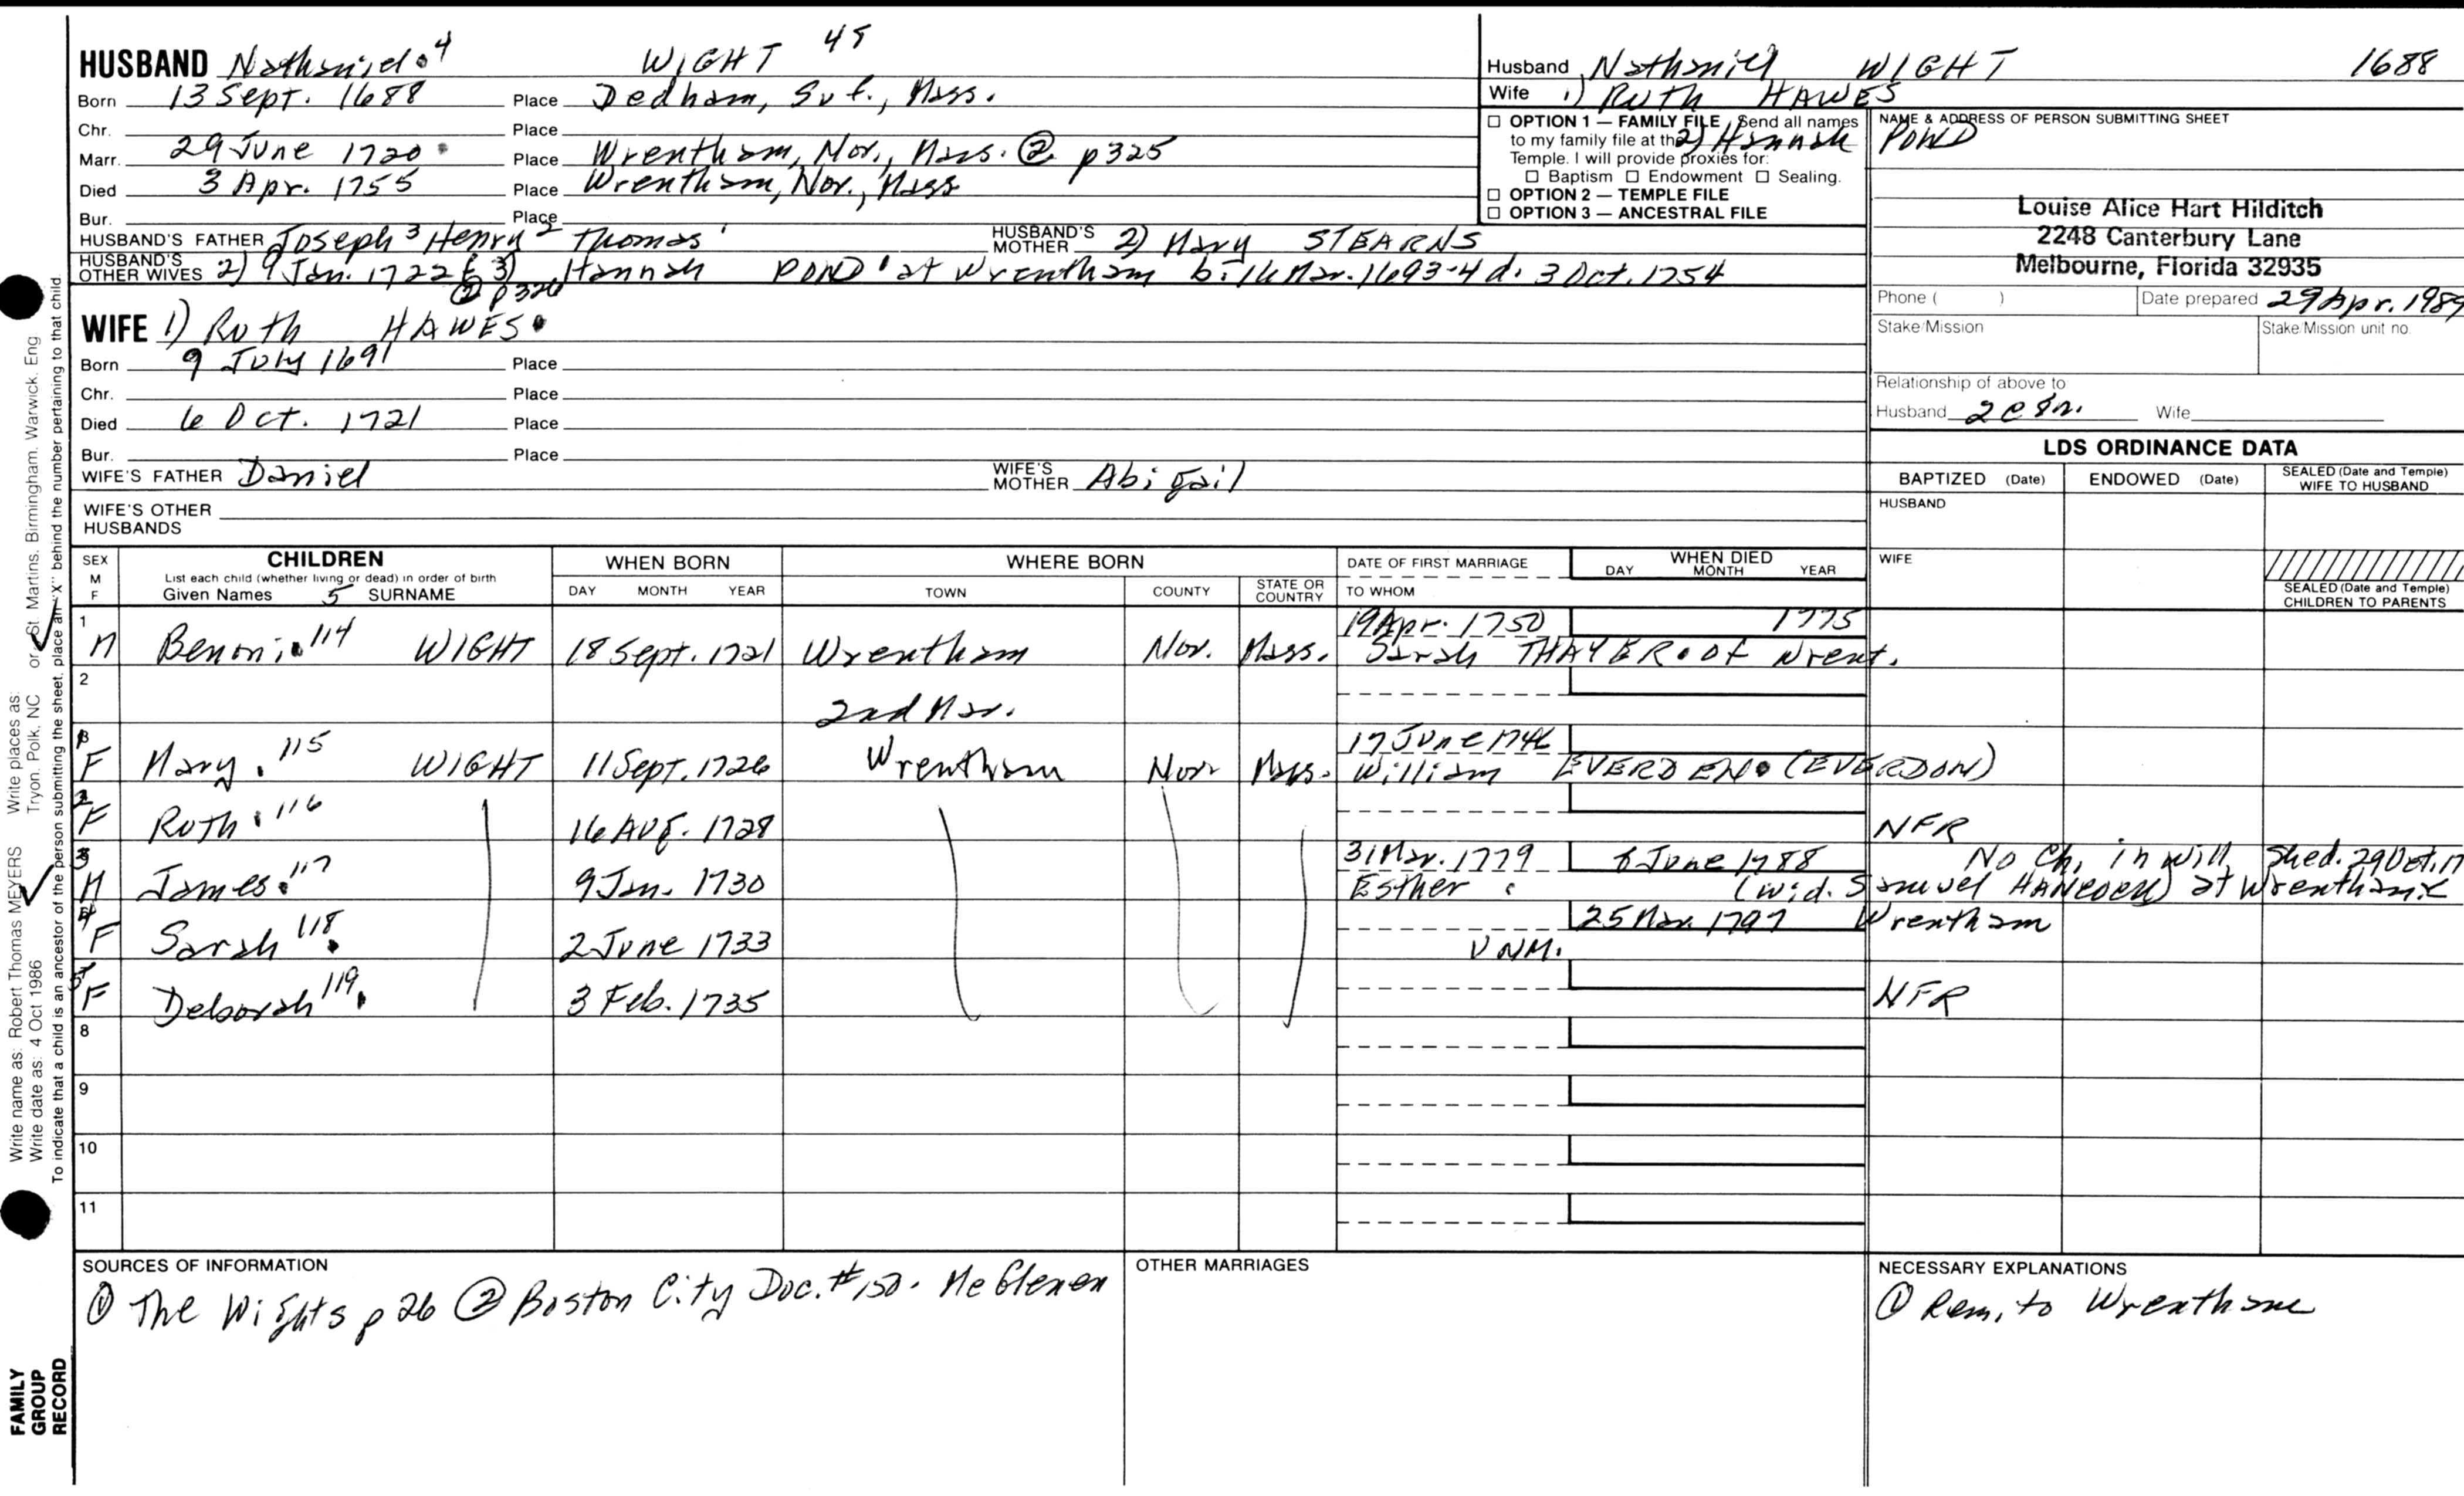 HUSBAND Nathaniel 4 WIGHT 45
Born 13 Sept. 1688 Place Dedham, Suf., Mass.
Chr. Place
Marr. 29 June 1720 Place Wrentham, Nor., Mass. ② p325
Died 3 Apr. 1755 Place Wrentham, Nor., Mass
Bur. Place
HUSBAND'S FATHER Joseph 3 Henry 2 Thomas 1 HUSBAND'S MOTHER 2) Mary STEARNS
HUSBAND'S OTHER WIVES 2) 9 Jan. 1722 Hannah POND at Wrentham b. 16 Mar. 1693-4 d. 3 Oct. 1754
② p326
WIFE 1) Ruth HAWES
Born 9 July 1691 Place
Chr. Place
Died 6 Oct. 1721 Place
Bur. Place
WIFE'S FATHER Daniel WIFE'S MOTHER Abigail
WIFE'S OTHER HUSBANDS
Husband Nathaniel WIGHT 1688
Wife 1) Ruth HAWES
2) Hannah POND
☐ OPTION 1 — FAMILY FILE Send all names
to my family file at the
Temple. I will provide proxies for:
☐ Baptism ☐ Endowment ☐ Sealing.
☐ OPTION 2 — TEMPLE FILE
☐ OPTION 3 — ANCESTRAL FILE
NAME & ADDRESS OF PERSON SUBMITTING SHEET
Louise Alice Hart Hilditch
2248 Canterbury Lane
Melbourne, Florida 32935
Phone ( ) Date prepared 29 Apr. 1989
Stake/Mission Stake/Mission unit no.
Relationship of above to
Husband Wife
LDS ORDINANCE DATA
BAPTIZED (Date) ENDOWED (Date) SEALED (Date and Temple) WIFE TO HUSBAND
HUSBAND
WIFE
SEALED (Date and Temple) CHILDREN TO PARENTS
SEX M F CHILDREN WHEN BORN WHERE BORN DATE OF FIRST MARRIAGE WHEN DIED
List each child (whether living or dead) in order of birth
Given Names 5 SURNAME DAY MONTH YEAR TOWN COUNTY STATE OR COUNTRY TO WHOM DAY MONTH YEAR
1 19 Apr. 1750 1775
M Benoni 114 WIGHT 18 Sept. 1721 Wrentham Nor. Mass. Sarah THAYER of Wrent.
2
2nd Mar.
17 June 1746
F Mary 115 WIGHT 11 Sept. 1726 Wrentham Nor Mass. William EVERDEN (EVERDON)
F Ruth 116 16 Aug. 1728 NFR
31 Mar. 1779 June 1788 No Ch. in will, 29 Oct. 17
M James 117 9 Jan. 1730 Esther (wid. Samuel HANCOCK) at Wrentham
25 Mar. 1797 Wrentham
F Sarah 118 2 June 1733 UNM.
F Deborah 119 3 Feb. 1735 NFR
8
9
10
11
SOURCES OF INFORMATION
① The Wights p 26 ② Boston City Doc. #150. McGlenen
OTHER MARRIAGES
NECESSARY EXPLANATIONS
① Rem. to Wrentham
Write name as: Robert Thomas MEYERS Write places as: Tryon, Polk, NC or St Martins, Birmingham, Warwick, Eng
Write date as: 4 Oct 1986
To indicate that a child is an ancestor of the person submitting the sheet, place an "X" behind the number pertaining to that child
FAMILY
GROUP
RECORD